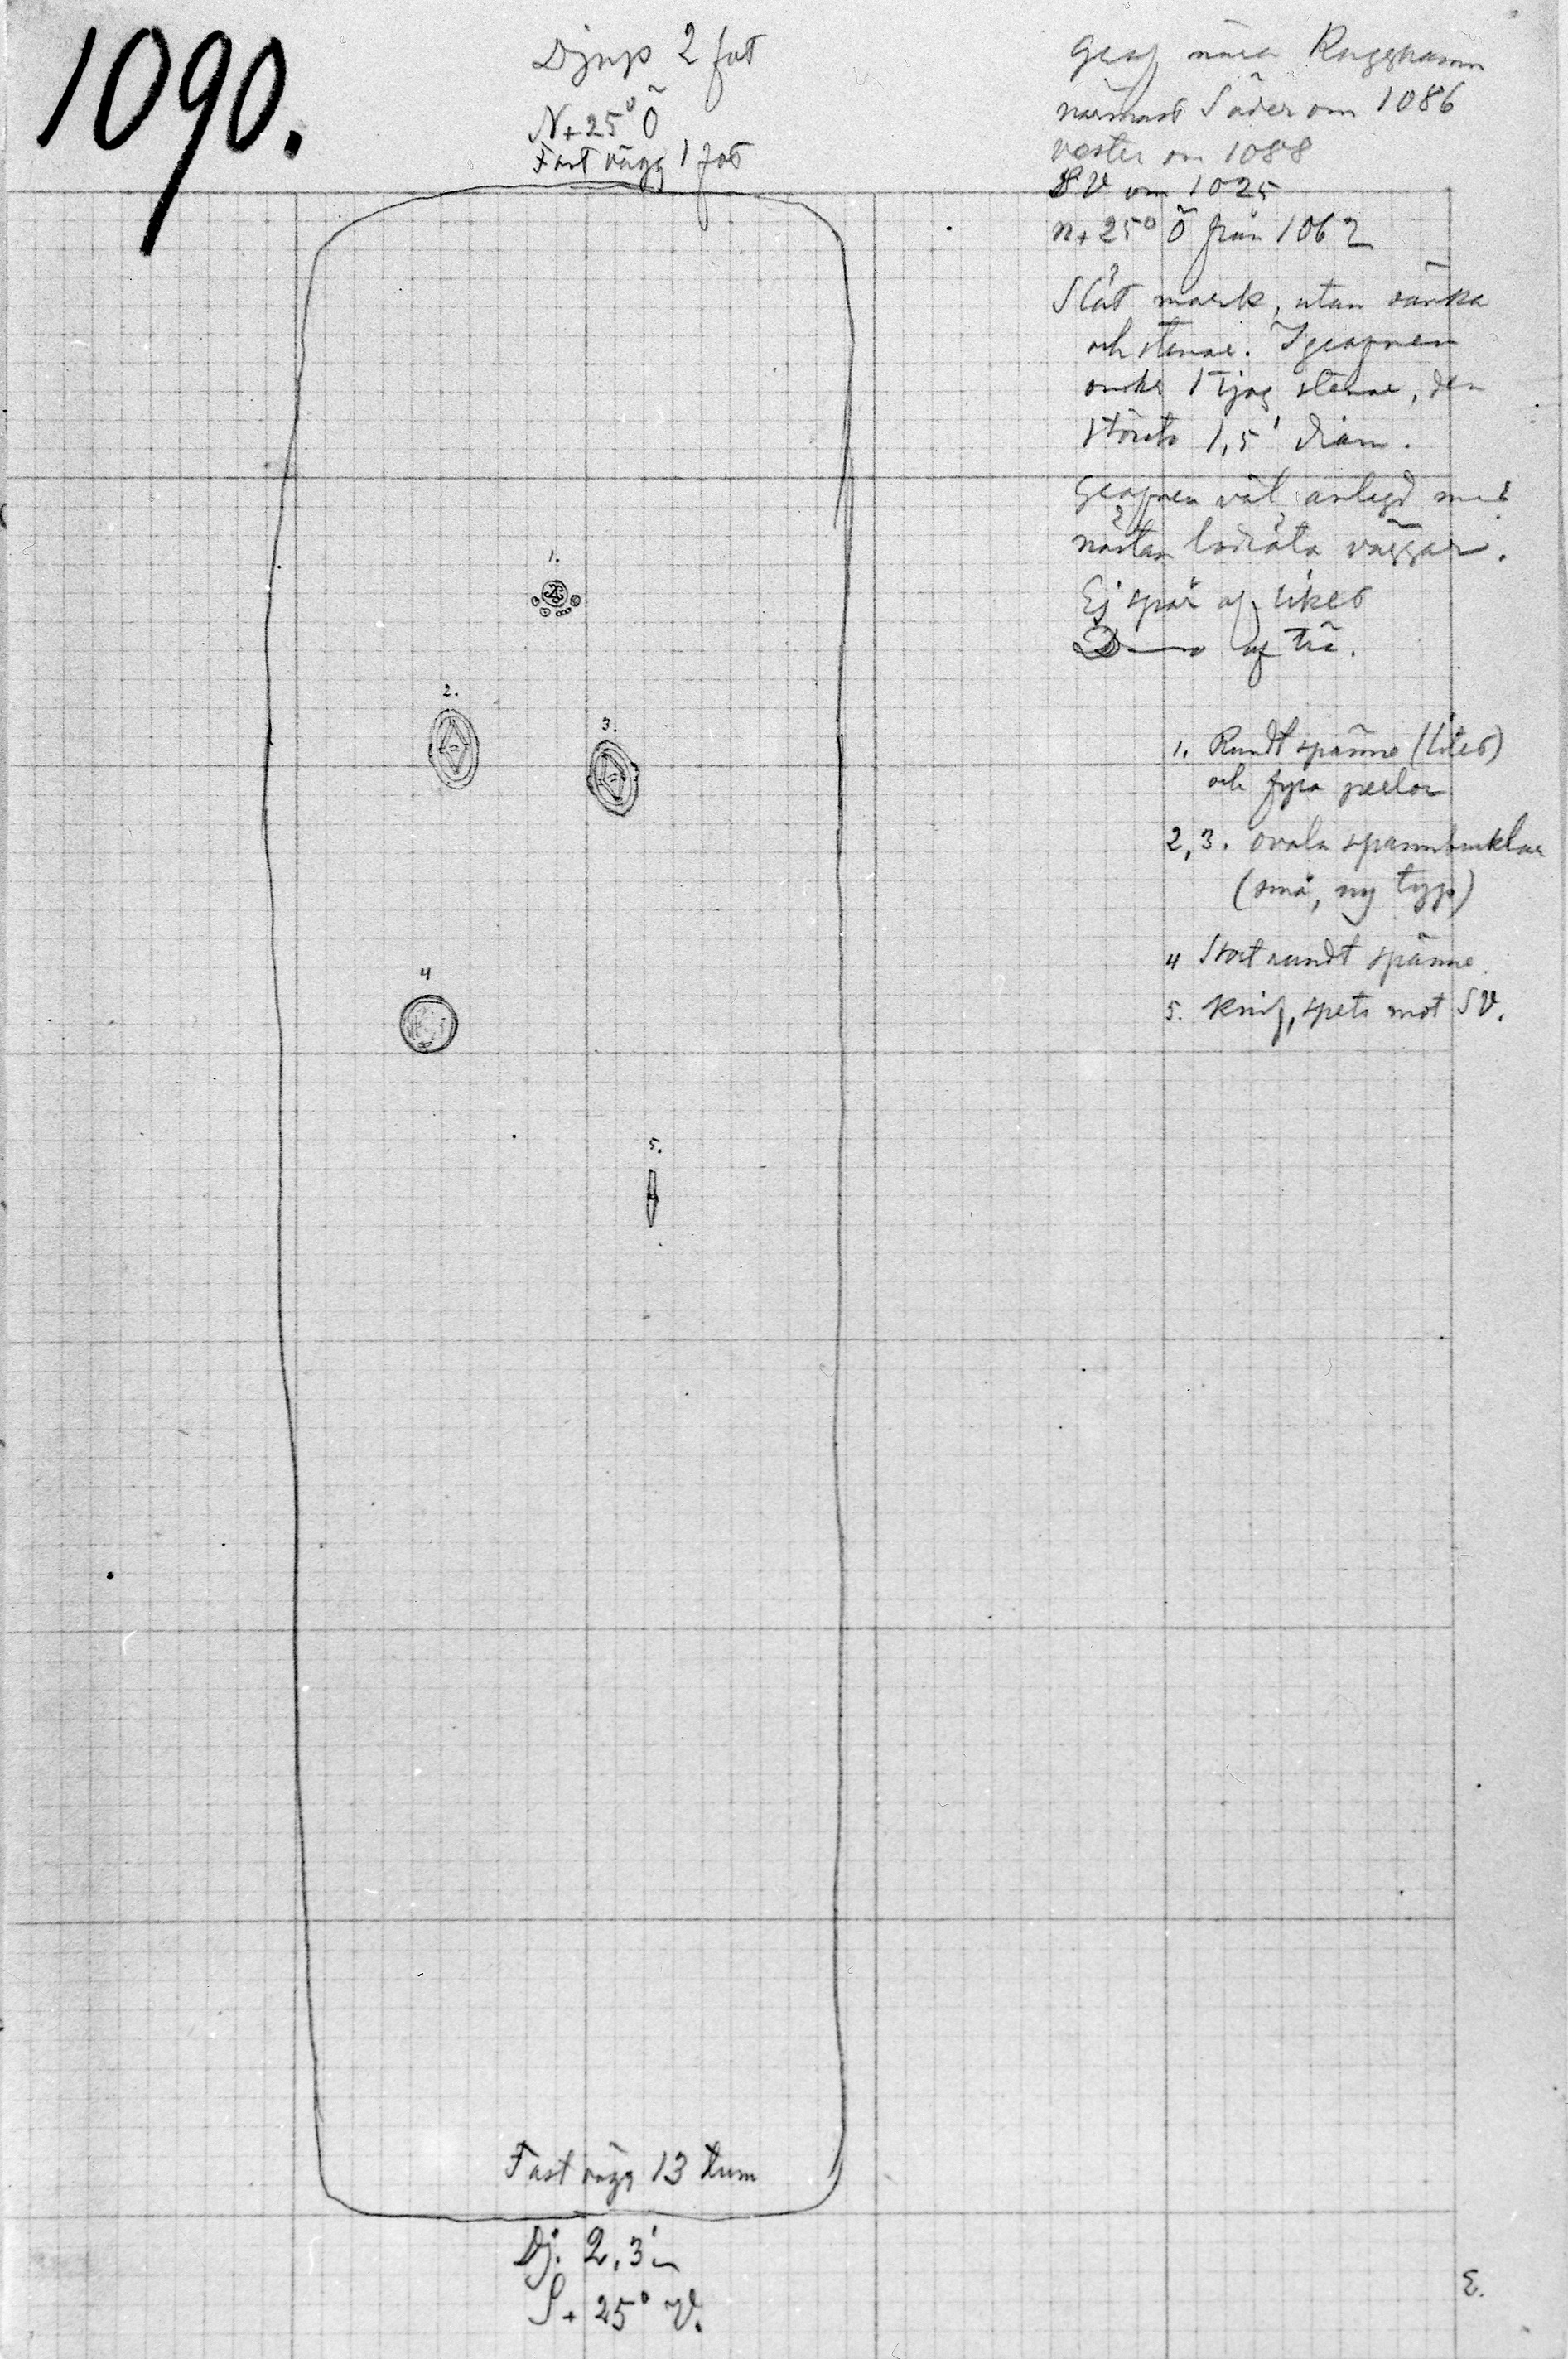 1090.
Djup 2 fot
N+25° Ö
Fast vägg 1 fot
Graf nära Kugghamn
närmast Söder om 1086
vester om 1088
SV om 1025
N+25° Ö från 1062
Slät mark, utan
och stenar. I grafven
stenar, den
största 1,5' diam.
Grafven väl anlagd med
nästan lodräta väggar.
Ej spår af liket
D—o af trä.
1. Rundt spänne (litet)
och fyra perlor
2,3. ovala spännbucklor
(små, ny typ)
4 Stort rundt spänne.
5. Knif, spets mot SV.
1.
2.
3.
4
5.
Fast vägg 13 tum
Dj. 2,3'
S+25° V.
E.